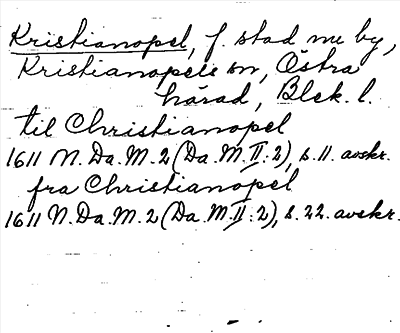 Kristianopel, f. stad nu by,
Kristianopels sn, Östra
härad, Blek. l.
til Christianopel
1611 N. Da. M. 2 (Da. M. II: 2), s. 11. avskr.
fra Christianopel
1611 N. Da. M. 2 (Da. M. II: 2), s. 22. avskr.